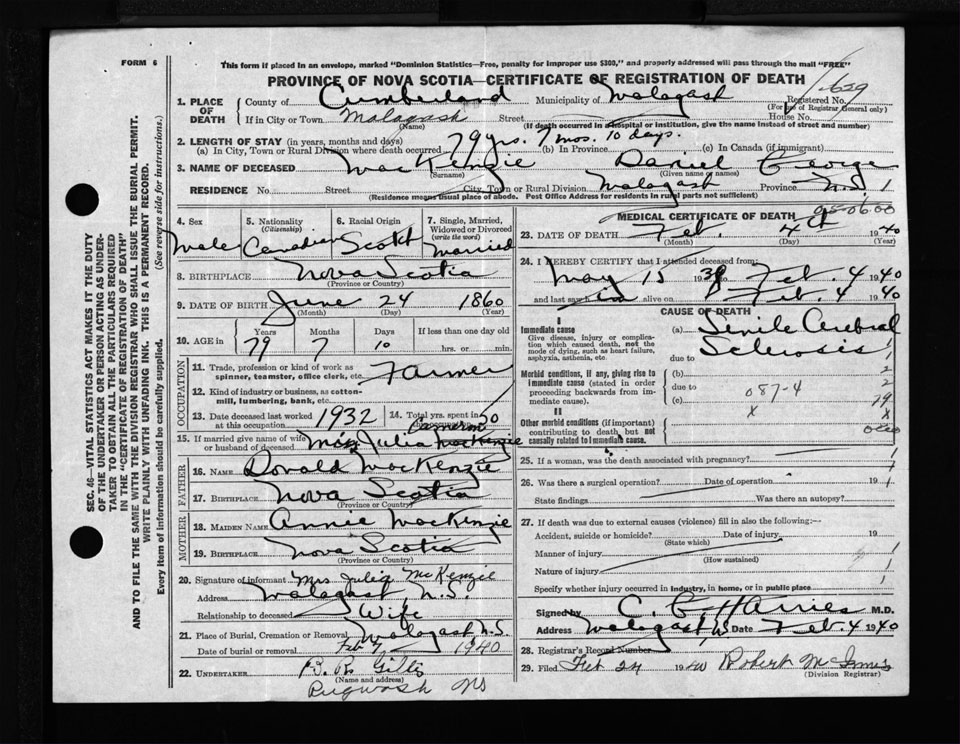 FORM 6
This form if placed in an envelope, marked "Dominion Statistics—Free, penalty for improper use $300," and properly addressed will pass through the mail "FREE"
PROVINCE OF NOVA SCOTIA—CERTIFICATE OF REGISTRATION OF DEATH
1. PLACE OF DEATH County of Cumberland Municipality of Malagash Registered No.
(For use of Registrar General only)
If in City or Town Malagash Street House No.
(Name) (If death occurred in a hospital or institution, give the name instead of street and number)
2. LENGTH OF STAY (in years, months and days)
(a) In City, Town or Rural Division where death occurred 79 yrs. 7 mos. 10 days. (b) In Province (c) In Canada (if immigrant)
3. NAME OF DECEASED MacKenzie Daniel George
(Surname) (Given name or names)
RESIDENCE No. Street City, Town or Rural Division Malagash Province N.S. 1
(Residence means usual place of abode. Post Office Address for residents in rural parts not sufficient)
4. Sex Male
5. Nationality (Citizenship) Canadian
6. Racial Origin Scotch
7. Single, Married, Widowed or Divorced (write the word) Married
8. BIRTHPLACE Nova Scotia
(Province or Country)
9. DATE OF BIRTH June 24 1860
(Month) (Day) (Year)
10. AGE in Years Months Days If less than one day old
79 7 10 hrs. or min.
OCCUPATION
11. Trade, profession or kind of work as spinner, teamster, office clerk, etc. Farmer
12. Kind of industry or business, as cotton-mill, lumbering, bank, etc.
13. Date deceased last worked at this occupation 1932
14. Total yrs. spent in 50
15. If married give name of wife or husband of deceased Julia Cameron MacKenzie
FATHER
16. NAME Donald MacKenzie
17. BIRTHPLACE Nova Scotia
(Province or Country)
MOTHER
18. MAIDEN NAME Annie MacKenzie
19. BIRTHPLACE Nova Scotia
(Province or Country)
20. Signature of informant Mrs Julia McKenzie
Address Malagash, N.S.
Relationship to deceased Wife
21. Place of Burial, Cremation or Removal Malagash N.S.
Date of burial or removal Feb 7 1940
22. UNDERTAKER
(Name and address)
Pugwash NS
MEDICAL CERTIFICATE OF DEATH
23. DATE OF DEATH Feb. 4th 1940
(Month) (Day) (Year)
24. I HEREBY CERTIFY that I attended deceased from:
May 15 1939 Feb. 4 1940
and last saw him alive on Feb. 4 1940
CAUSE OF DEATH
I
Immediate cause
Give disease, injury or complication which caused death, not the mode of dying, such as heart failure, asphyxia, asthenia, etc.
(a) Senile Cerebral Sclerosis
due to
Morbid conditions, if any, giving rise to immediate cause (stated in order proceeding backwards from immediate cause).
(b)
due to 087-4
(c)
x
II
Other morbid conditions (if important) contributing to death but not causally related to immediate cause.
x
1
1
2
2
79
25. If a woman, was the death associated with pregnancy?
26. Was there a surgical operation? Date of operation 19
State findings Was there an autopsy?
27. If death was due to external causes (violence) fill in also the following:—
Accident, suicide or homicide? Date of injury 19
(State which)
Manner of injury
(How sustained)
Nature of injury
Specify whether injury occurred in industry, in home, or in public place
Signed by C. E. Harries M.D.
Address Malagash, NS Date Feb. 4 1940
28. Registrar's Record Number
29. Filed Feb 24 1940 Robert McInnis
(Division Registrar)
SEC. 46—VITAL STATISTICS ACT MAKES IT THE DUTY
OF THE UNDERTAKER OR PERSON ACTING AS UNDER-
TAKER TO OBTAIN ALL THE PARTICULARS REQUIRED
IN THE "CERTIFICATE OF REGISTRATION OF DEATH"
AND TO FILE THE SAME WITH THE DIVISION REGISTRAR WHO SHALL ISSUE THE BURIAL PERMIT.
WRITE PLAINLY WITH UNFADING INK. THIS IS A PERMANENT RECORD.
Every item of information should be carefully supplied. (See reverse side for instructions.)